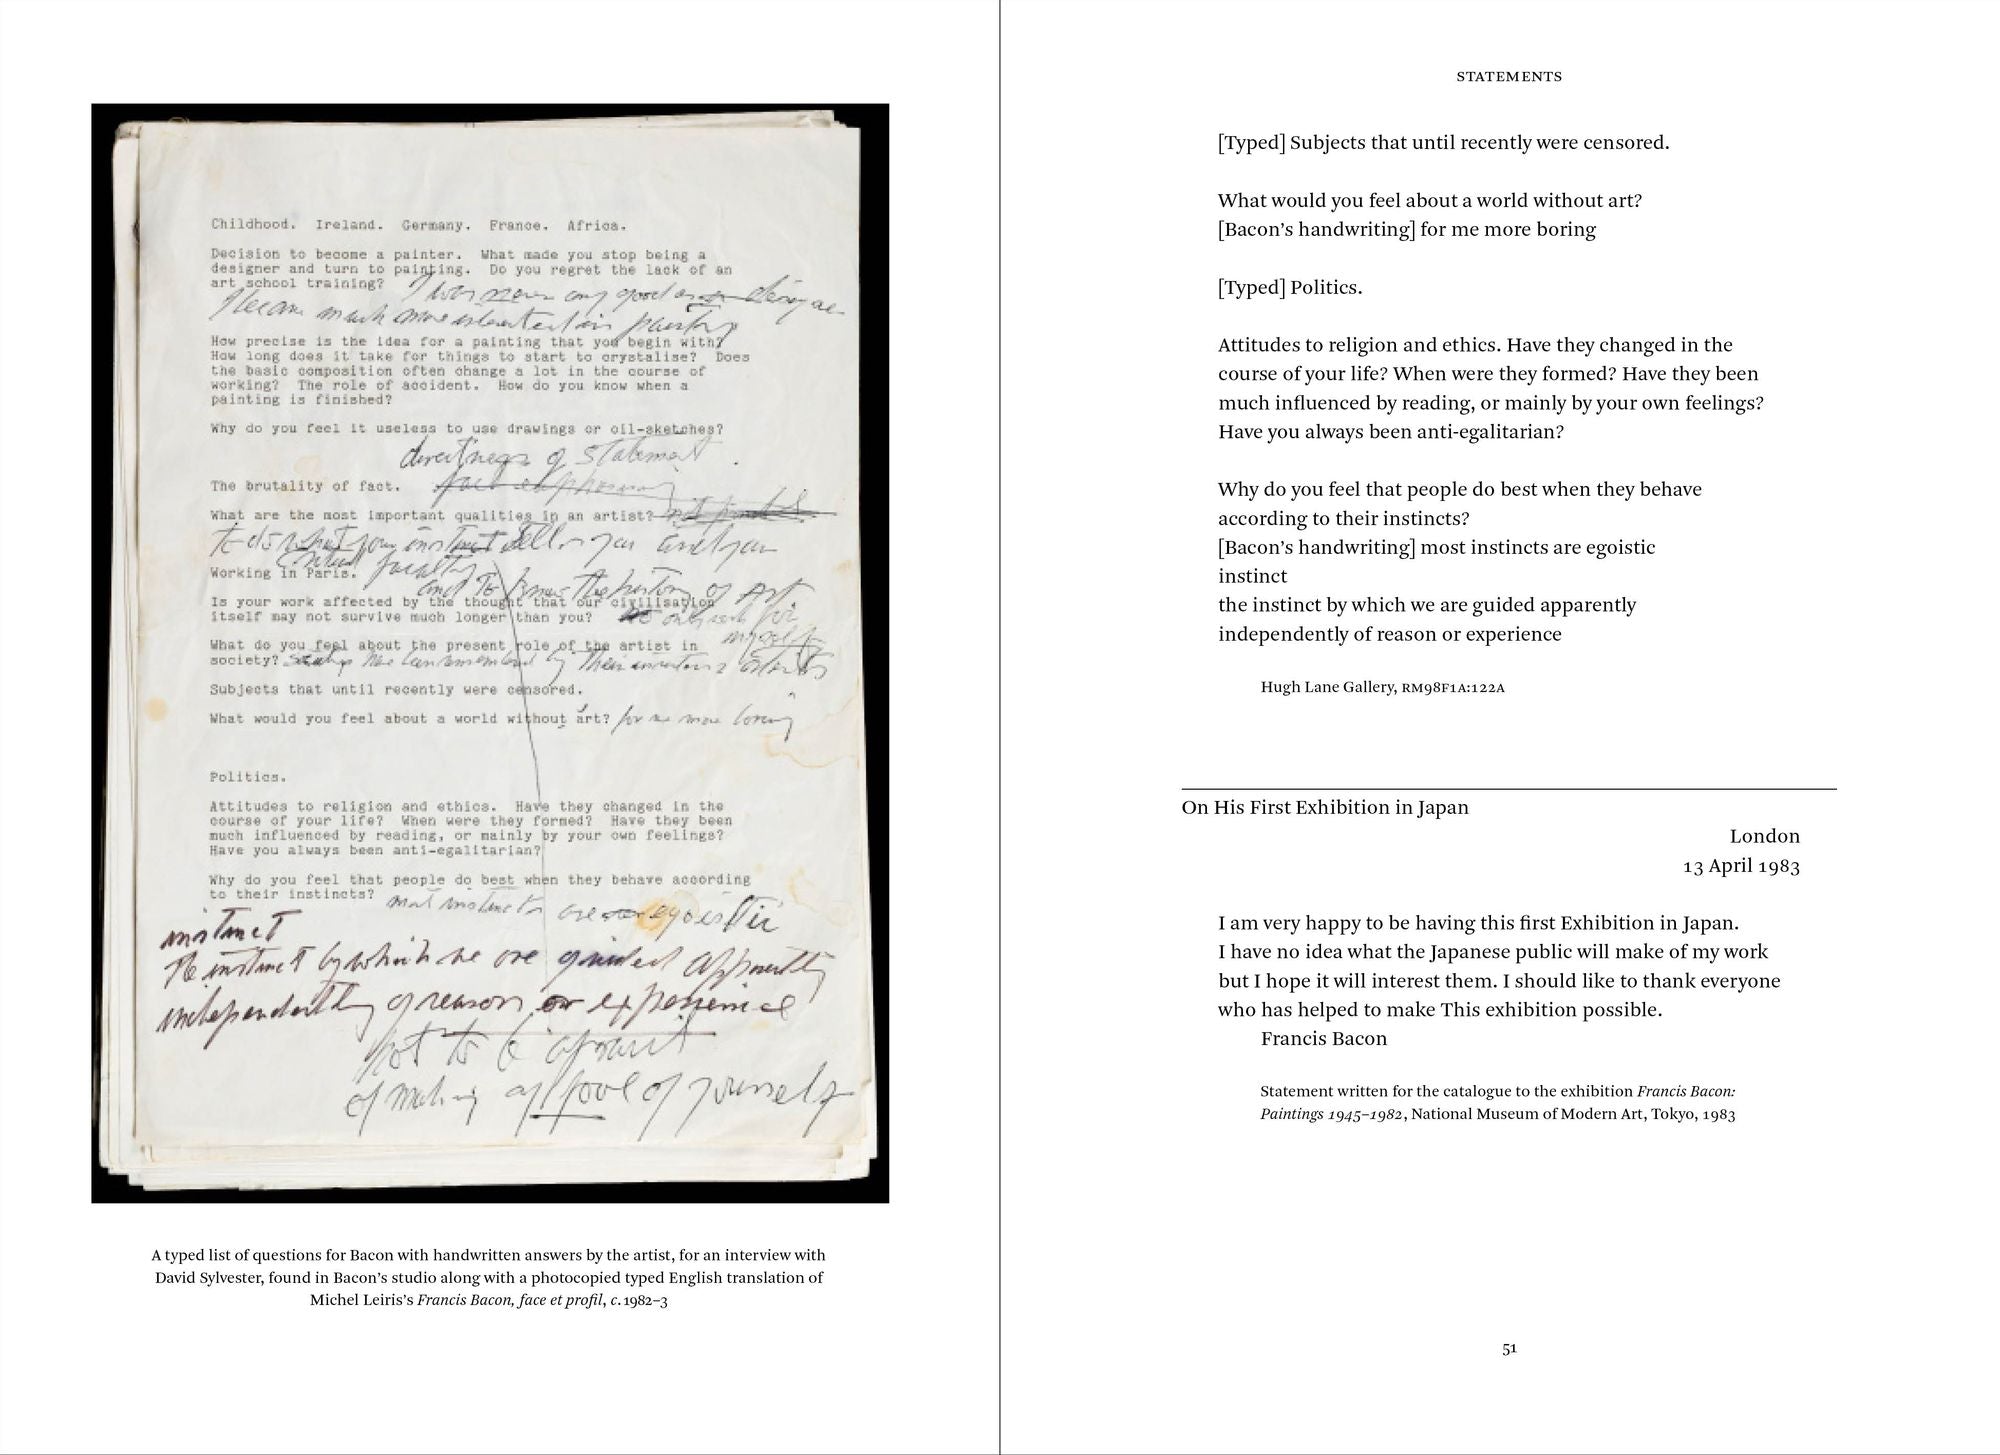 Childhood. Ireland. Germany. France. Africa.
Decision to become a painter. What made you stop being a
designer and turn to painting. Do you regret the lack of an
art school training? I was never any good as a designer
I became much more interested in painting
How precise is the idea for a painting that you begin with?
How long does it take for things to start to crystalise? Does
the basic composition often change a lot in the course of
working? The role of accident. How do you know when a
painting is finished?
Why do you feel it useless to use drawings or oil-sketches?
directness of statement
The brutality of fact.
What are the most important qualities in an artist?
to do what your instinct tells you and your
critical faculty
Working in Paris.
and to know the history of Art
Is your work affected by the thought that our civilisation
itself may not survive much longer than you? only work for
myself
What do you feel about the present role of the artist in
society? have been remembered by their inventors & artists
Subjects that until recently were censored.
What would you feel about a world without art? for me more boring
Politics.
Attitudes to religion and ethics. Have they changed in the
course of your life? When were they formed? Have they been
much influenced by reading, or mainly by your own feelings?
Have you always been anti-egalitarian?
Why do you feel that people do best when they behave according
to their instincts? most instincts are egoistic
instinct
the instinct by which we are guided apparently
independently of reason or experience
not to be afraid
of making a fool of yourself
A typed list of questions for Bacon with handwritten answers by the artist, for an interview with
David Sylvester, found in Bacon’s studio along with a photocopied typed English translation of
Michel Leiris’s Francis Bacon, face et profil, c. 1982–3
STATEMENTS
[Typed] Subjects that until recently were censored.
What would you feel about a world without art?
[Bacon’s handwriting] for me more boring
[Typed] Politics.
Attitudes to religion and ethics. Have they changed in the
course of your life? When were they formed? Have they been
much influenced by reading, or mainly by your own feelings?
Have you always been anti-egalitarian?
Why do you feel that people do best when they behave
according to their instincts?
[Bacon’s handwriting] most instincts are egoistic
instinct
the instinct by which we are guided apparently
independently of reason or experience
Hugh Lane Gallery, RM98F1A:122A
On His First Exhibition in Japan
London
13 April 1983
I am very happy to be having this first Exhibition in Japan.
I have no idea what the Japanese public will make of my work
but I hope it will interest them. I should like to thank everyone
who has helped to make This exhibition possible.
Francis Bacon
Statement written for the catalogue to the exhibition Francis Bacon:
Paintings 1945–1982, National Museum of Modern Art, Tokyo, 1983
51